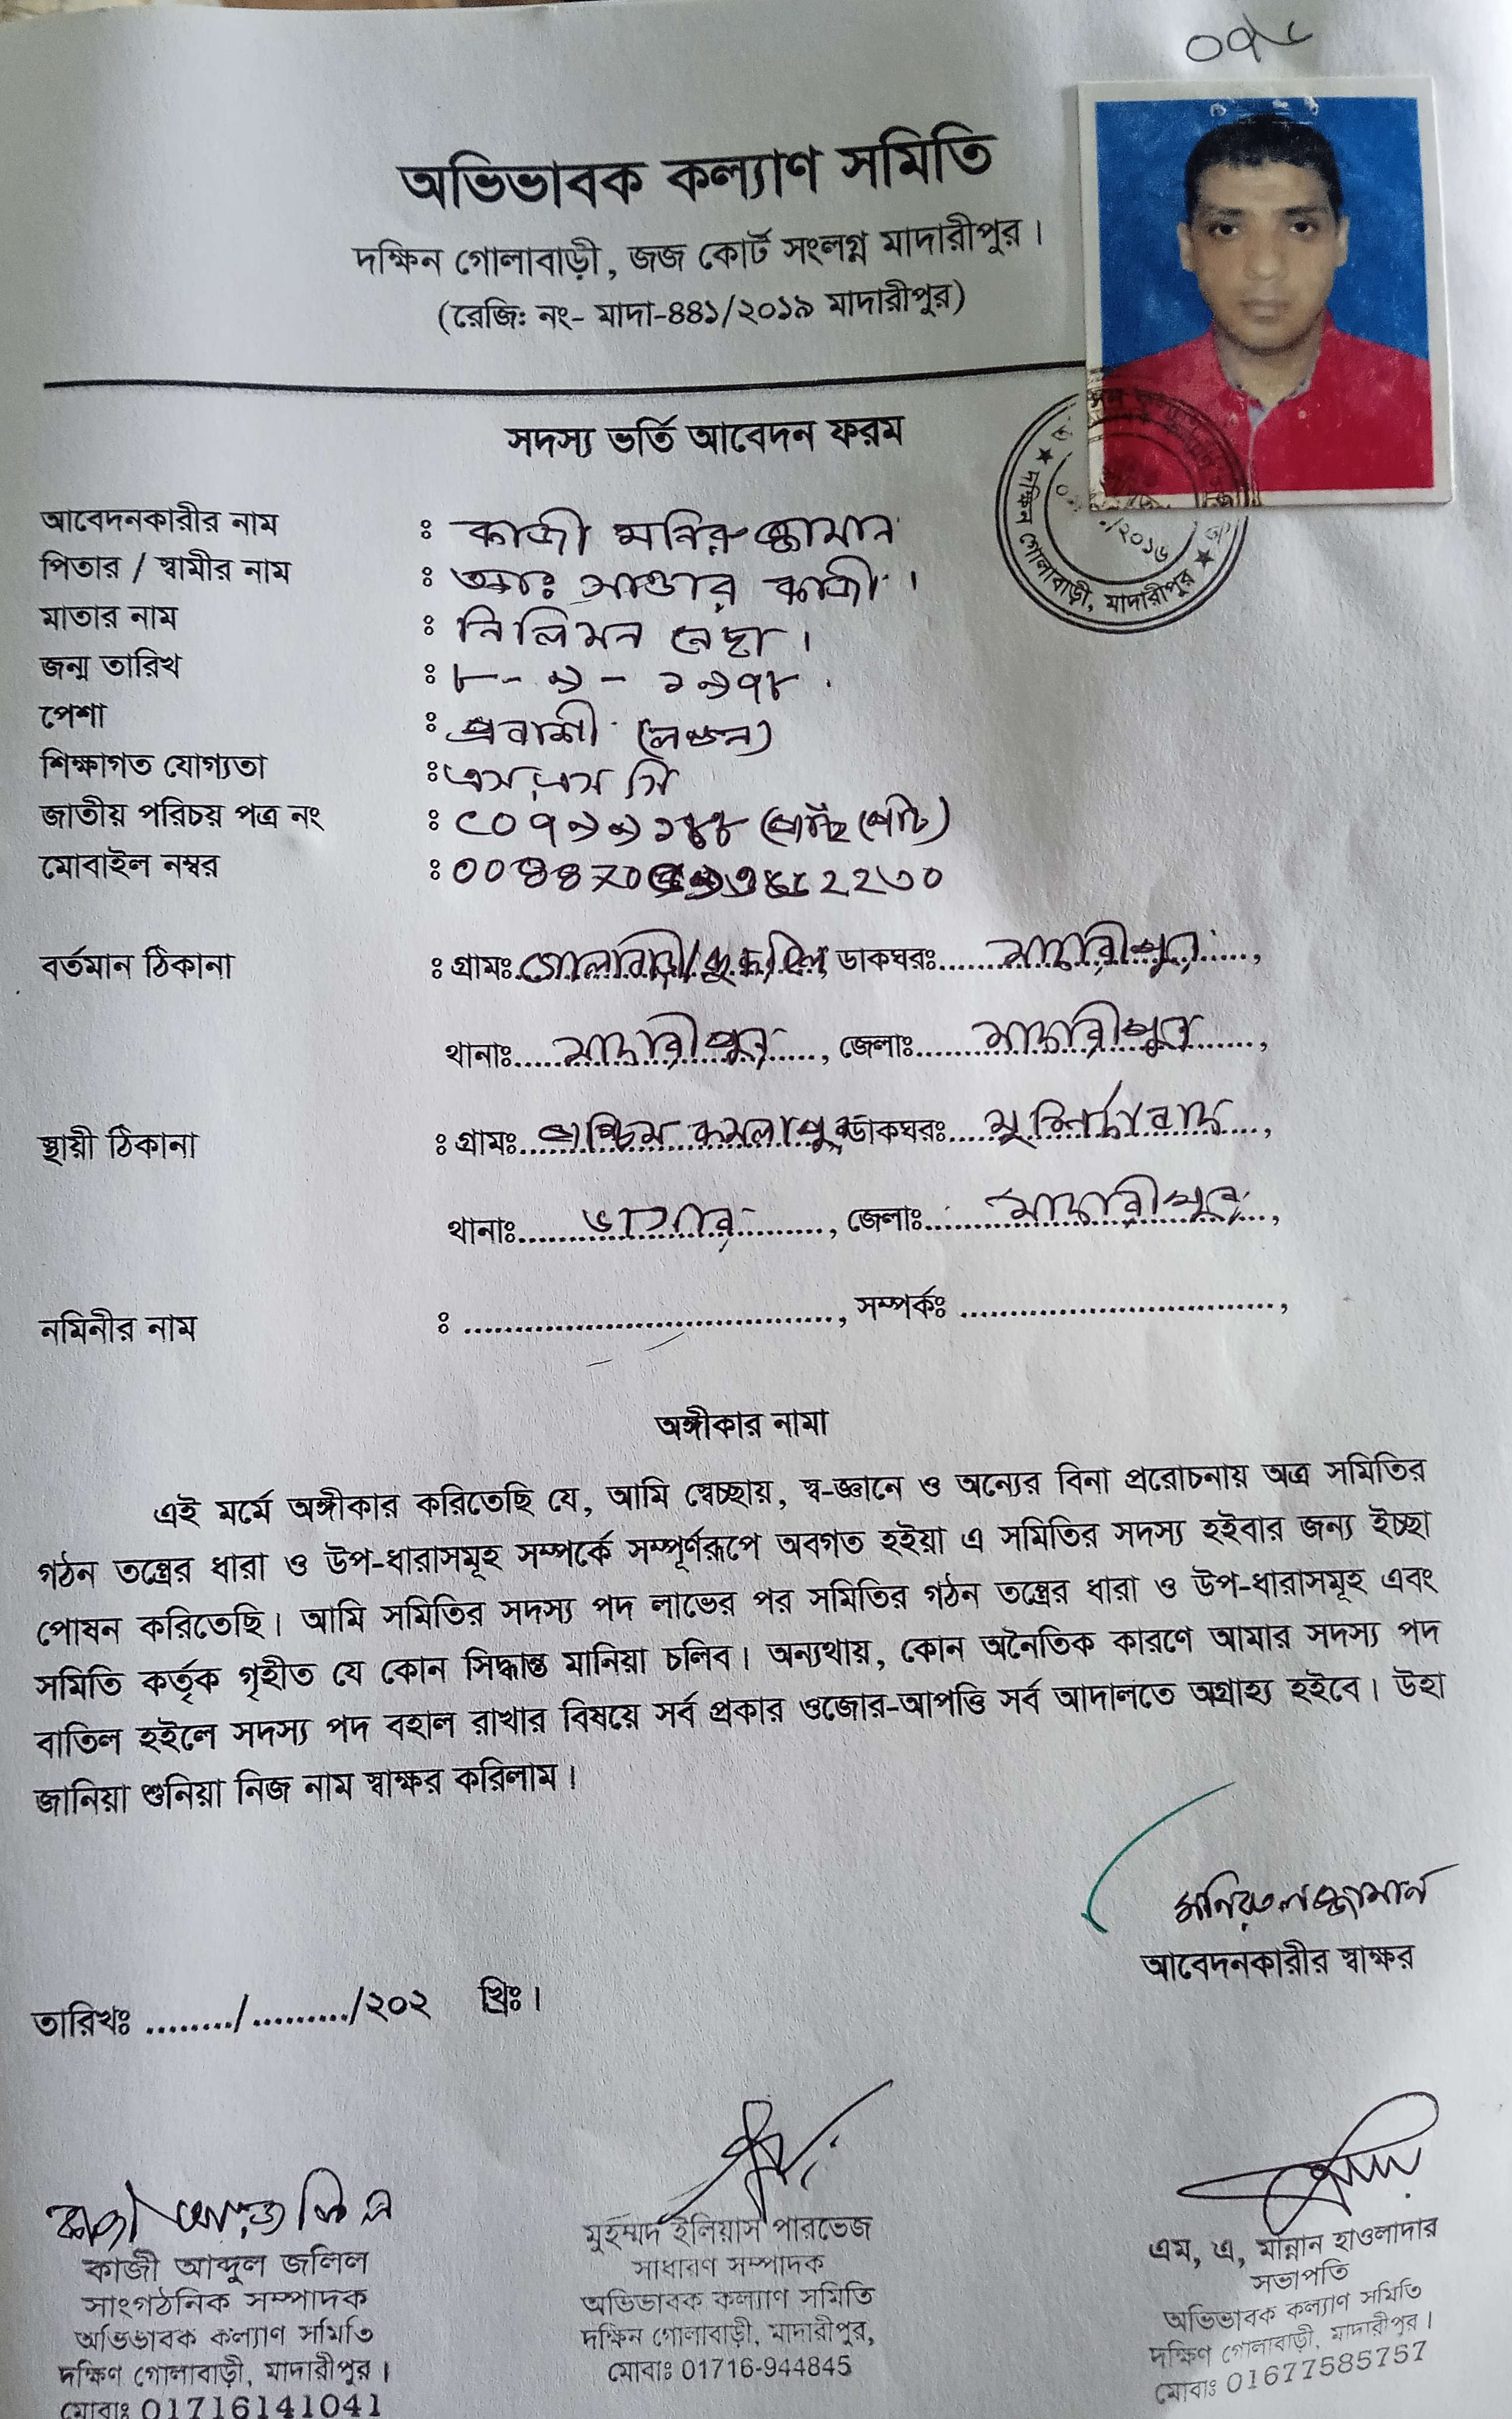 ০৭৮
অভিভাবক কল্যাণ সমিতি
দক্ষিন গোলাবাড়ী, জজ কোর্ট সংলগ্ন মাদারীপুর।
(রেজিঃ নং- মাদা-৪৪১/২০১৯ মাদারীপুর)
দক্ষিন গোলাবাড়ী, মাদারীপুর
সদস্য ভর্তি আবেদন ফরম
আবেদনকারীর নাম : কাজী মনিরুজ্জামান
পিতার / স্বামীর নাম : আঃ সাত্তার কাজী।
মাতার নাম : নিলিমন নেছা।
জন্ম তারিখ : ৮-৯-১৯৭৮.
পেশা : প্রবাশী (লন্ডন)
শিক্ষাগত যোগ্যতা : এস,এস সি
জাতীয় পরিচয় পত্র নং : ৫০৭৯৯১৪৪
মোবাইল নম্বর : ০০৪৪
বর্তমান ঠিকানা : গ্রামঃ গোলাবাড়ী/ ডাকঘরঃ মাদারীপুর,
থানাঃ মাদারীপুর, জেলাঃ মাদারীপুর,
স্থায়ী ঠিকানা : গ্রামঃ পশ্চিম কমলাপুর ডাকঘরঃ মুর্শিদাবাদ,
থানাঃ ডাসার, জেলাঃ মাদারীপুর,
নমিনীর নাম : ...................................., সম্পর্কঃ ................................,
অঙ্গীকার নামা
এই মর্মে অঙ্গীকার করিতেছি যে, আমি স্বেচ্ছায়, স্ব-জ্ঞানে ও অন্যের বিনা প্ররোচনায় অত্র সমিতির
গঠন তন্ত্রের ধারা ও উপ-ধারাসমূহ সম্পর্কে সম্পূর্ণরূপে অবগত হইয়া এ সমিতির সদস্য হইবার জন্য ইচ্ছা
পোষন করিতেছি। আমি সমিতির সদস্য পদ লাভের পর সমিতির গঠন তন্ত্রের ধারা ও উপ-ধারাসমূহ এবং
সমিতি কর্তৃক গৃহীত যে কোন সিদ্ধান্ত মানিয়া চলিব। অন্যথায়, কোন অনৈতিক কারণে আমার সদস্য পদ
বাতিল হইলে সদস্য পদ বহাল রাখার বিষয়ে সর্ব প্রকার ওজোর-আপত্তি সর্ব আদালতে অগ্রাহ্য হইবে। উহা
জানিয়া শুনিয়া নিজ নাম স্বাক্ষর করিলাম।
মনিরুলজ্জামান
আবেদনকারীর স্বাক্ষর
তারিখঃ ........./........../২০২ খ্রিঃ।
কাজী আব্দুল জলিল
সাংগঠনিক সম্পাদক
অভিভাবক কল্যাণ সমিতি
দক্ষিণ গোলাবাড়ী, মাদারীপুর।
মোবাঃ 01716141041
মুহম্মদ ইলিয়াস পারভেজ
সাধারণ সম্পাদক
অভিভাবক কল্যাণ সমিতি
দক্ষিন গোলাবাড়ী, মাদারীপুর,
মোবাঃ 01716-944845
এম, এ, মান্নান হাওলাদার
সভাপতি
অভিভাবক কল্যাণ সমিতি
দক্ষিণ গোলাবাড়ী, মাদারীপুর।
মোবাঃ 01677585757